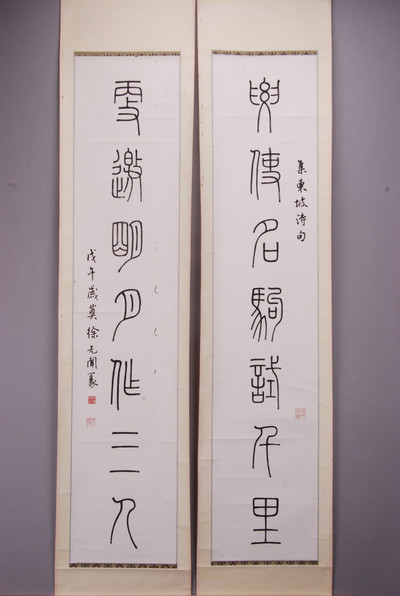 集東坡詩句
要使名駒試千里
更邀明月作三人
戊午歲莫徐无聞篆